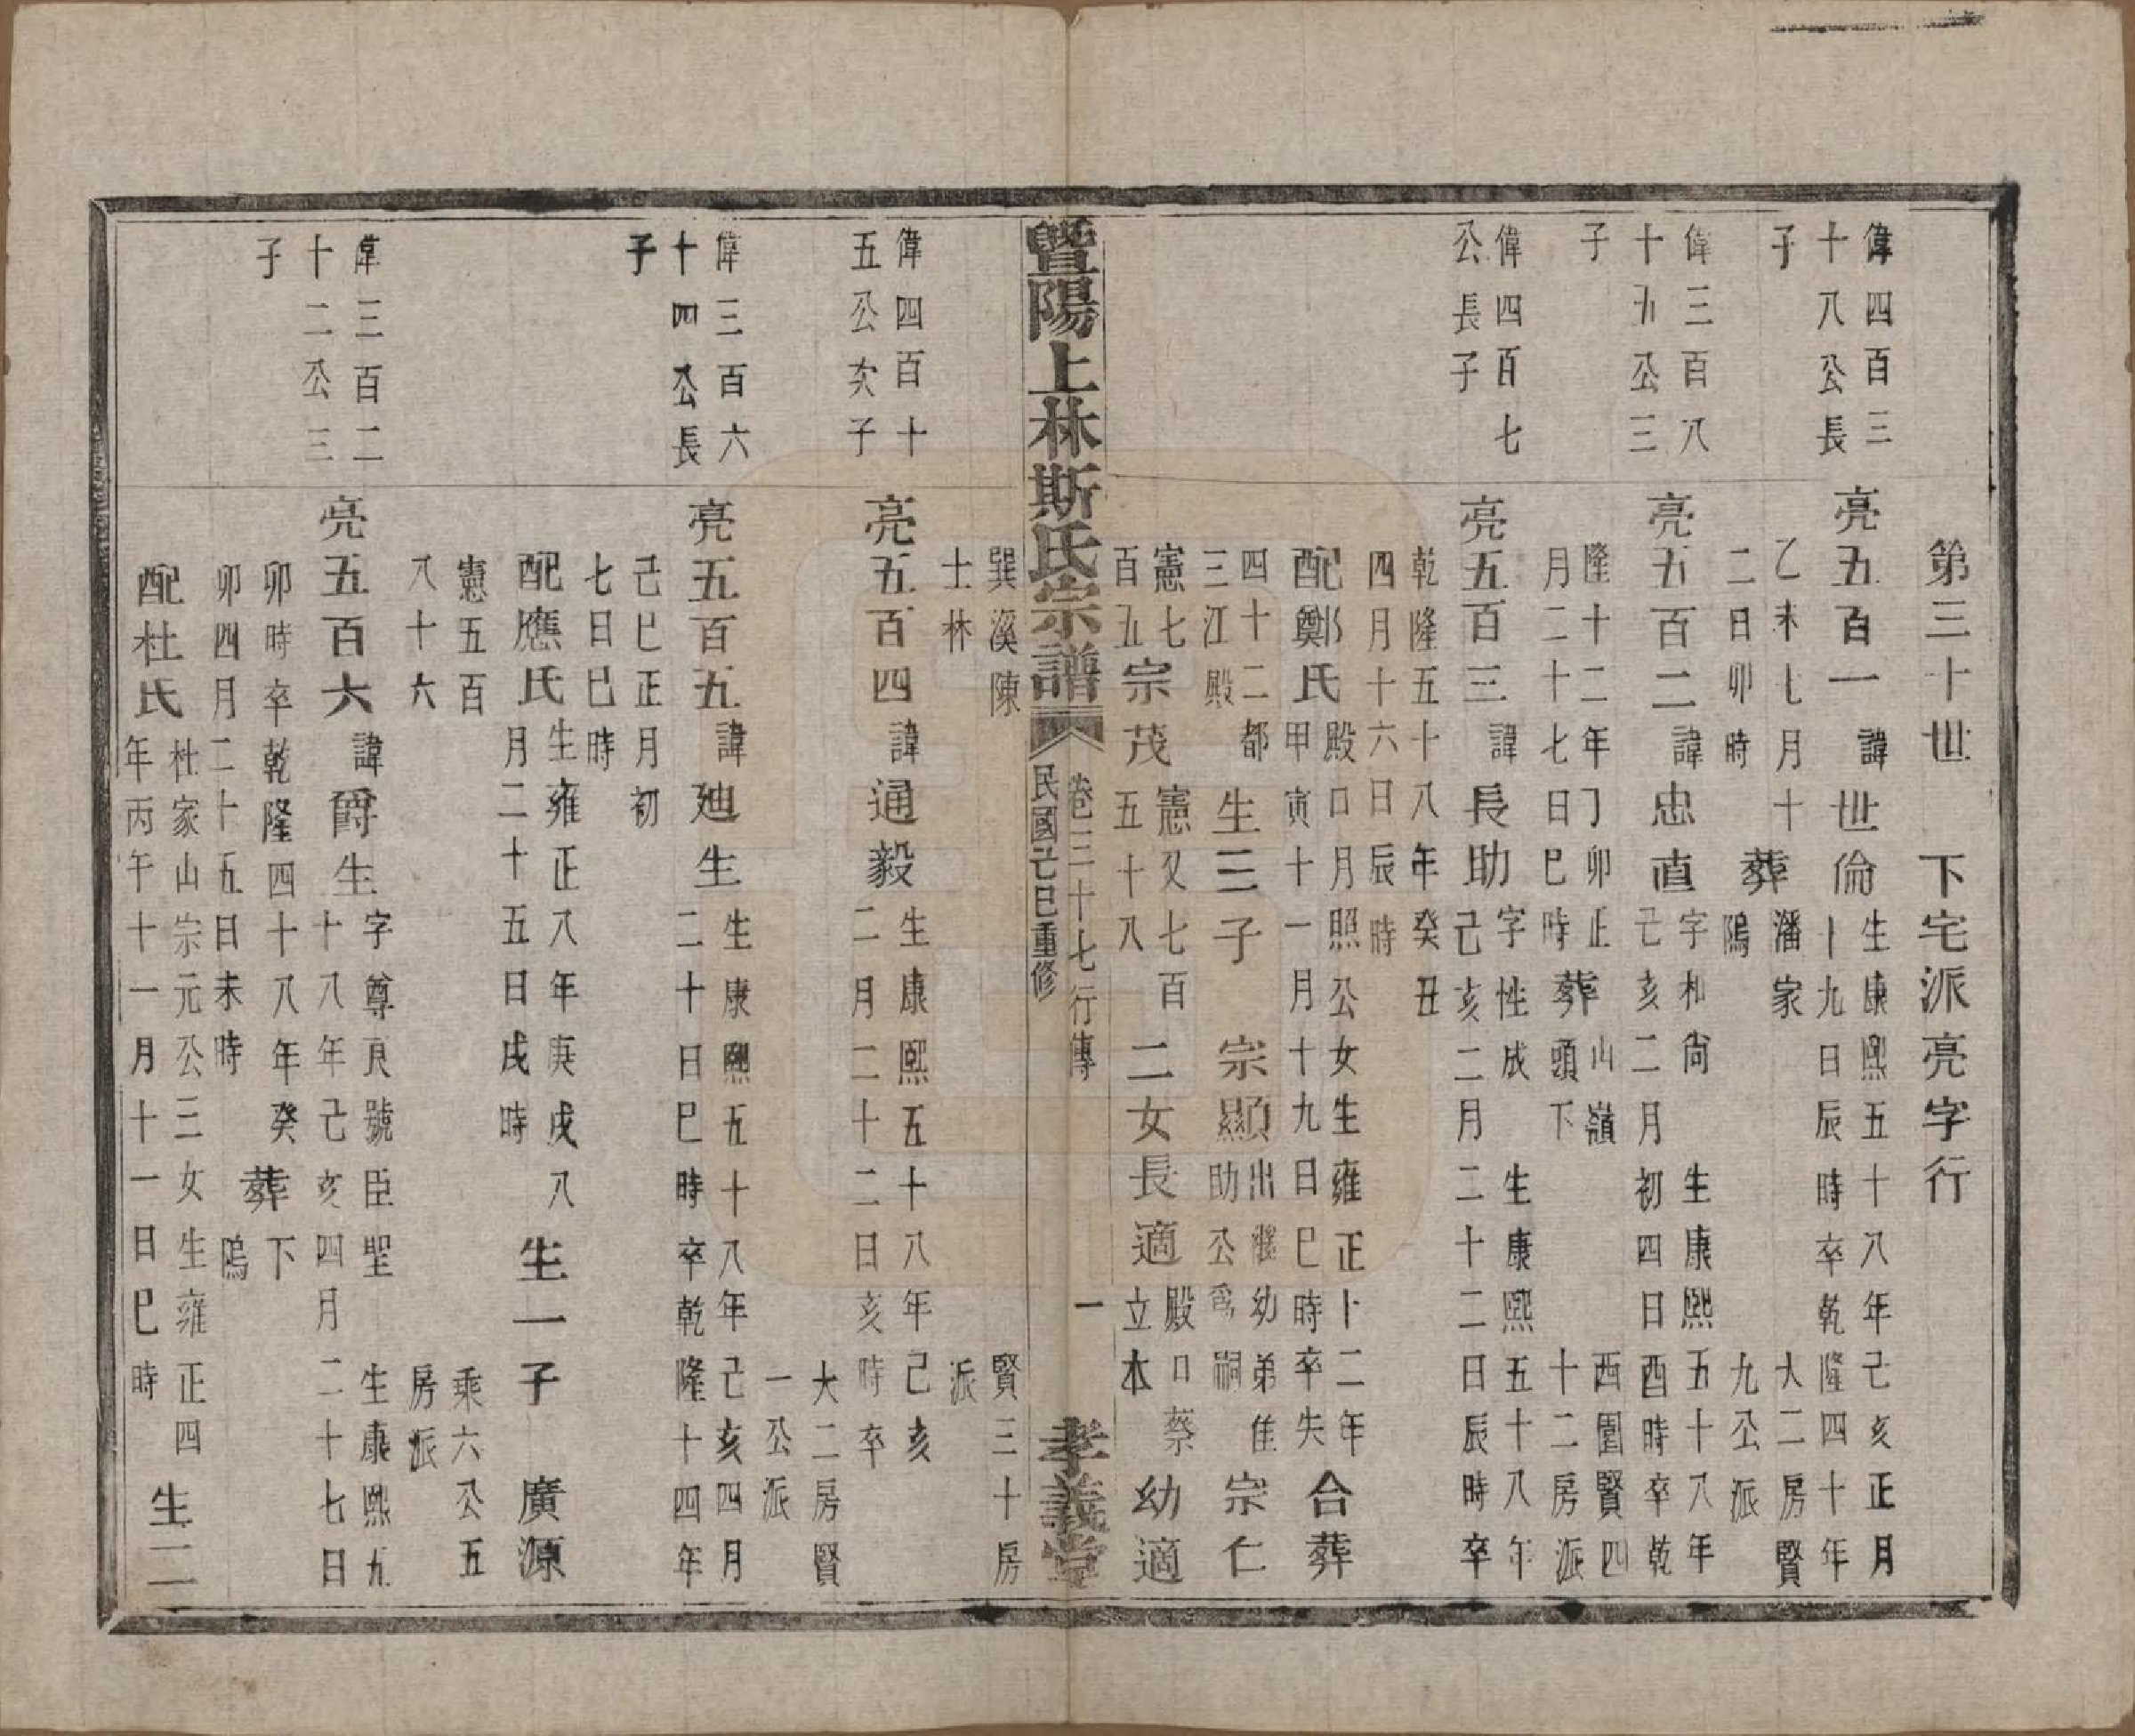 第三十世 下宅派亮字行
偉四百三
十八公長
子
亮五百一 諱世倫 生康熙五十八年己亥正月
十九日辰時卒乾隆四十年
乙未七月十
二日卯時
葬潘家
隝
大二房賢
九公派
偉三百八
十九公三
子
亮五百二 諱忠直 字和尚 生康熙五十八年
己亥二月初四日酉時卒乾
隆十二年丁卯正
月二十七日巳時
葬山嶺
頭下
西園賢四
十二房派
偉四百七
公長子
亮五百三 諱長助 字性成 生康熙五十八年
己亥二月二十二日辰時卒
乾隆五十八年癸丑
四月十六日辰時
配鄭氏 殿口月照公女生雍正十二年
甲寅十一月十九日巳時卒失
合葬
四十二都
三江殿
生三子 宗顯 出繼幼弟佳
助公爲嗣
宗仁
憲七
百五
宗茂 憲又七百
五十八
二女長適 殿口蔡
立本
幼適
巽溪陳
士林
賢三十房
派
暨陽上林斯氏宗譜
卷三十七行傳 一
民國己巳重修
孝義堂
偉四百十
五公次子
亮五百四 諱通毅 生康熙五十八年己亥
二月二十二日亥時卒
大二房賢
一公派
偉三百六
十四公長
子
亮五百五 諱廸生 生康熙五十八年己亥四月
二十日巳時卒乾隆十四年
己巳正月初
七日巳時
配應氏 生雍正八年庚戌八
月二十五日戌時
生一子 廣源
憲五百
八十六
乘六公五
房派
偉三百二
十二公三
子
亮五百六 諱爵生 字尊良號臣聖 生康熙五
十八年己亥四月二十七日
卯時卒乾隆四十八年癸
卯四月二十五日未時
葬下
隝
配杜氏 杜家山宗元公三女生雍正四
年丙午十一月十一日巳時
生二